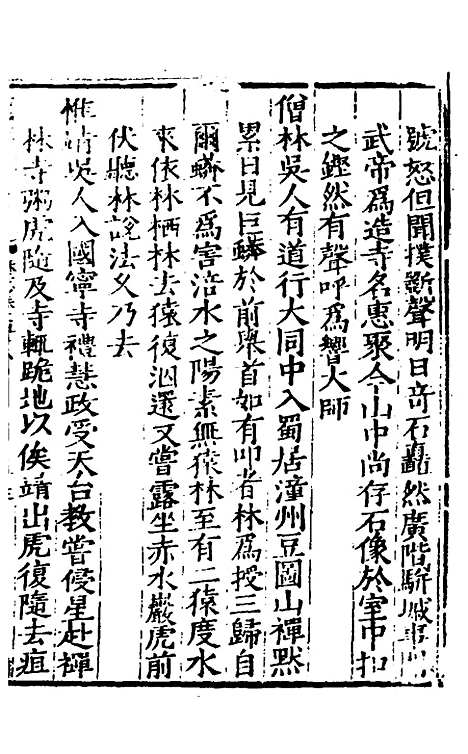 號怒但聞撲斲聲明日奇石矗然廣階駢城事聞
武帝爲造寺名惠聚今山中尚存石像於室中扣
之鏗然有聲呼爲響大師
僧林吳人有道行大同中入蜀居潼州豆圌山禪黙
累日見巨蟒於前舉首如有叩者林爲授三歸自
爾蟒不爲害涪水之陽素無猿林至有二猿度水
來依林栖林去猿復泅還又嘗露坐赤水巖虎前
伏聽林說法乆乃去
惟靖吳人入國寧寺禮慧政受天台教嘗侵星赴禪
林寺粥虎隨及寺輒跪地以俟靖出虎復隨去疽